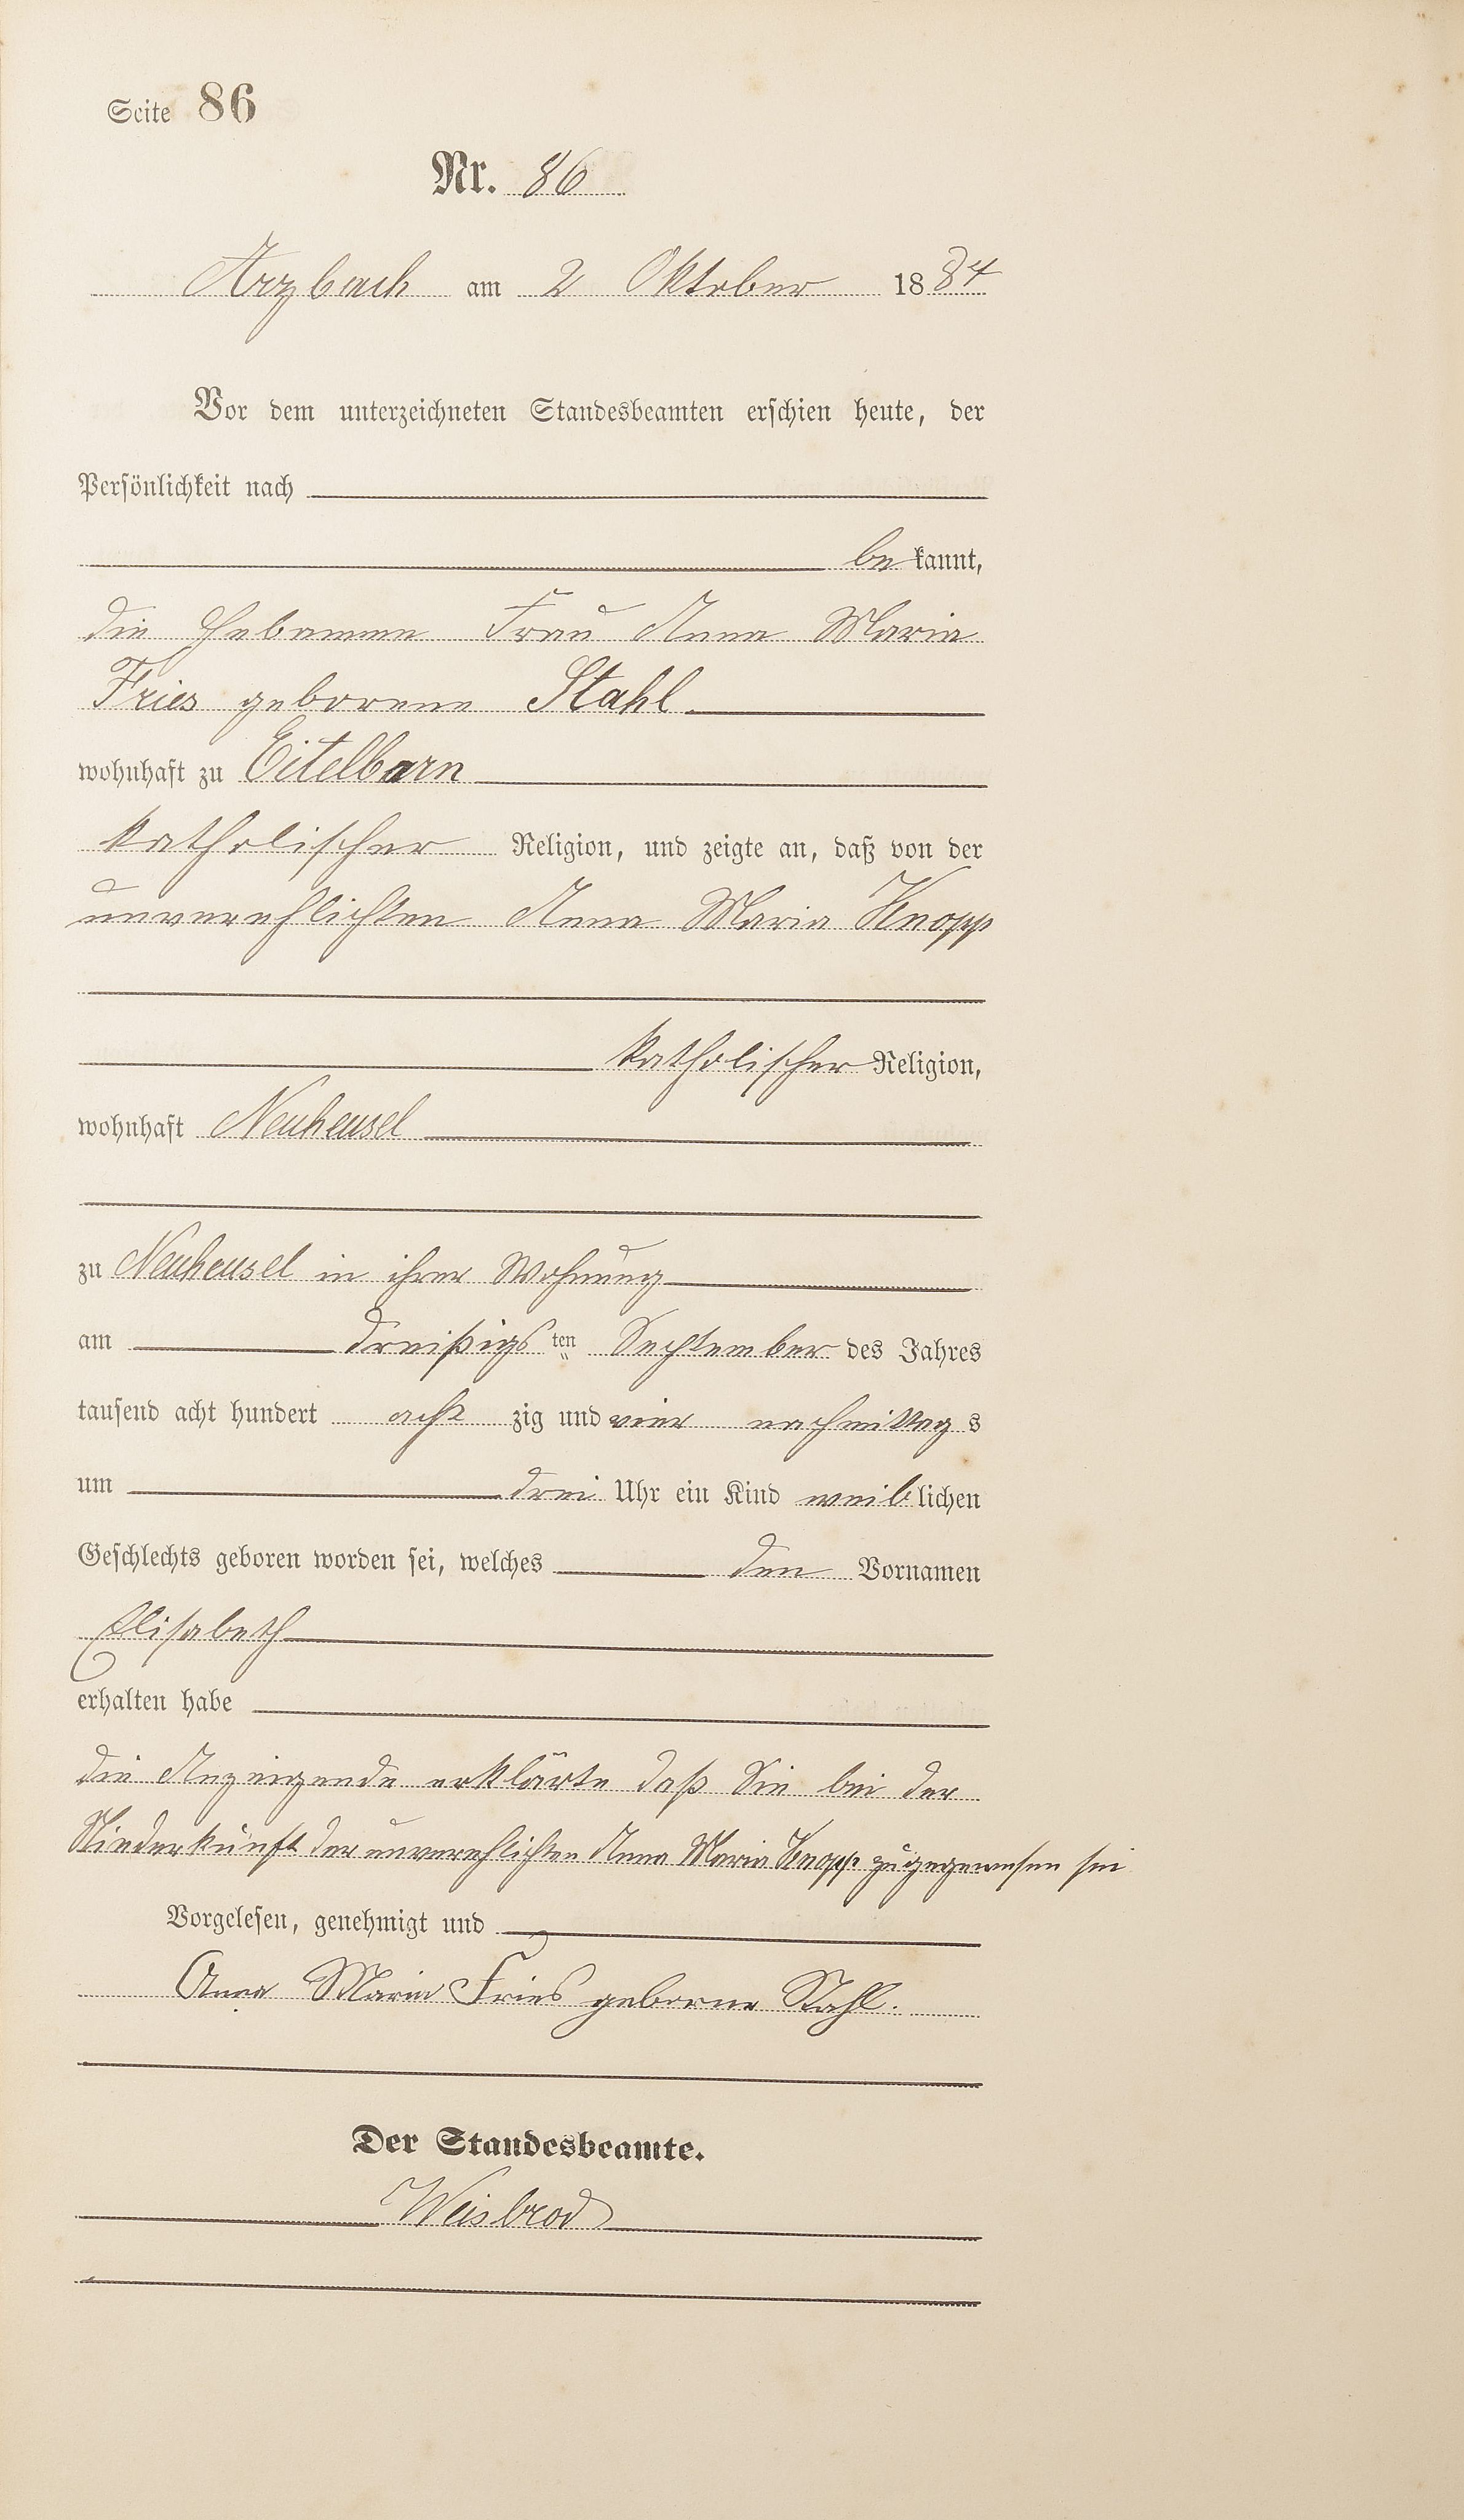 Seite 86
Nr. 86
Arzbach am 2 Oktober 1884
Vor dem unterzeichneten Standesbeamten erschien heute, der
Persönlichkeit nach
bekannt,
die Hebamme Frau Anna Maria
Fries geborene Stahl
wohnhaft zu Eitelborn
katholischer Religion, und zeigte an, daß von der
unverehlichten Anna Maria Knopp
katholischer Religion,
wohnhaft Neuheusel
zu Neuheusel in ihrer Wohnung
am dreißigsten September des Jahres
tausend acht hundert acht zig und vier nachmittags
um drei Uhr ein Kind weiblichen
Geschlechts geboren worden sei, welches den Vornamen
Elisabeth
erhalten habe
die Anzeigende erklärte daß Sie bei der
Niederkunft der unverehlichten Anna Maria Knopp zugegewesen sei
Vorgelesen, genehmigt und
Anna Maria Fries geborne Stahl.
Der Standesbeamte.
Weisbrod